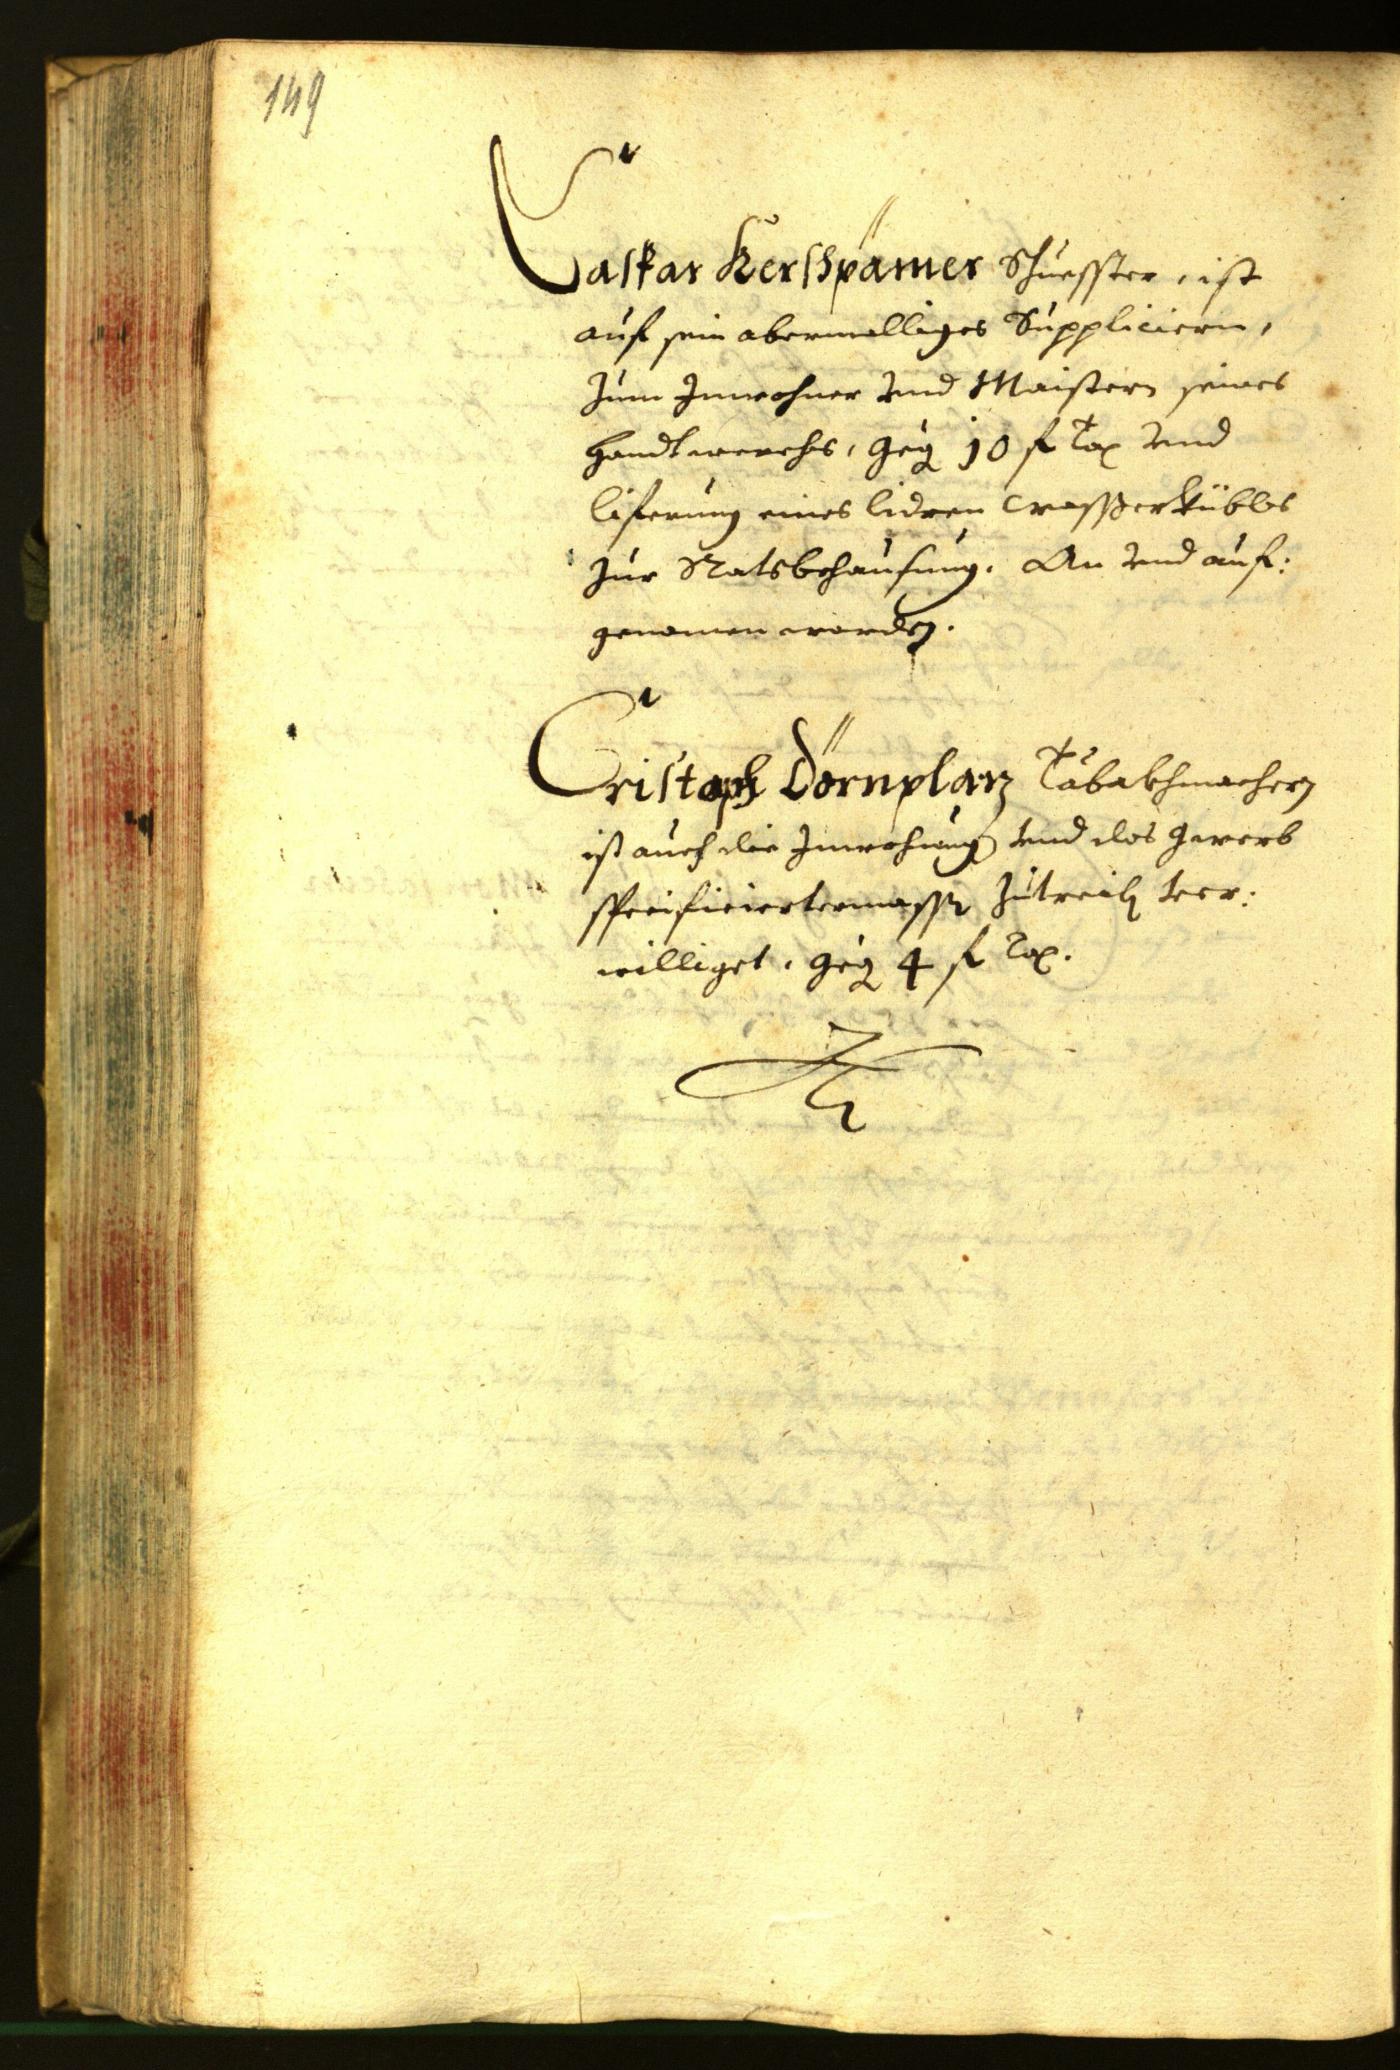 149
Caspar Kerschpamer Schuesster, ist
auf sein abermalliges Suppliciern,
zum Inwohner vnd Maistern seines
Handtwerchs, geg 10 f Tax vnd
lifferung eines lidren Wasserkübls
zur Ratsbehausung. An vnd auf:
genomen worden.
Cristoph Dornplaz Tabakhmachern
ist auch die Inwohnung vnd das Gwerb
specificiertermassen zutreiben ver:
williget, geg 4 f Tax.